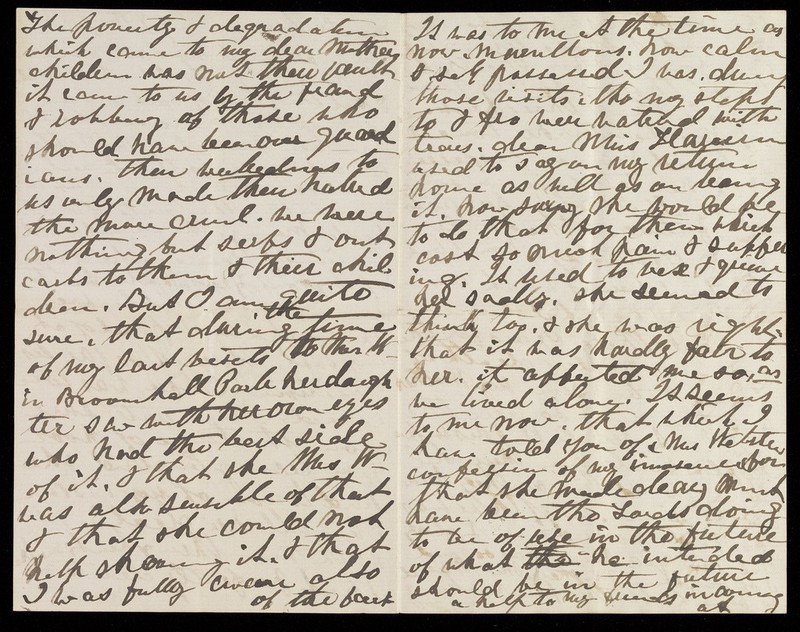 The poverty & degradation
which came to my dear Mothers
children was not their fault
it came to us by the fraud
& robbery of those who
should have been our guard
ians. their wickedness to
us only made their hatred
the more cruel. we were
nothing but serfs & out
casts to them & their chil
dren. But I am quite
sure, that during the time
of my last visits to Mrs W
in Broomhall Park her daugh
ter saw with her own eyes
who had the best side
of it. & that she Mrs W
was also sensible of that
& that she could not
help showing it. & that
I was fully aware also
of the fact
It was to me at the time as
now marvellous. how calm
& self possessed I was. during
those visits. tho my steps
to & fro were watered with
tears. dear Miss Harrison
used to say on my return
home as well as on leaving
it. how sorry she would be
to do that for them which
cost so much pain & suffer
ing. It used to vex & grieve
her sadly. she seemed to
think too. & she was right.
that it was hardly fair to
her. it affected me so, as
we lived alone. It seems
to me now. that which I
have told you of Mrs Webster
confession of my innocence for
that she made clear must
have been the Lords doing
to be of use in the future
of what the he intended
should be in the future
a help to my friends in coming
at